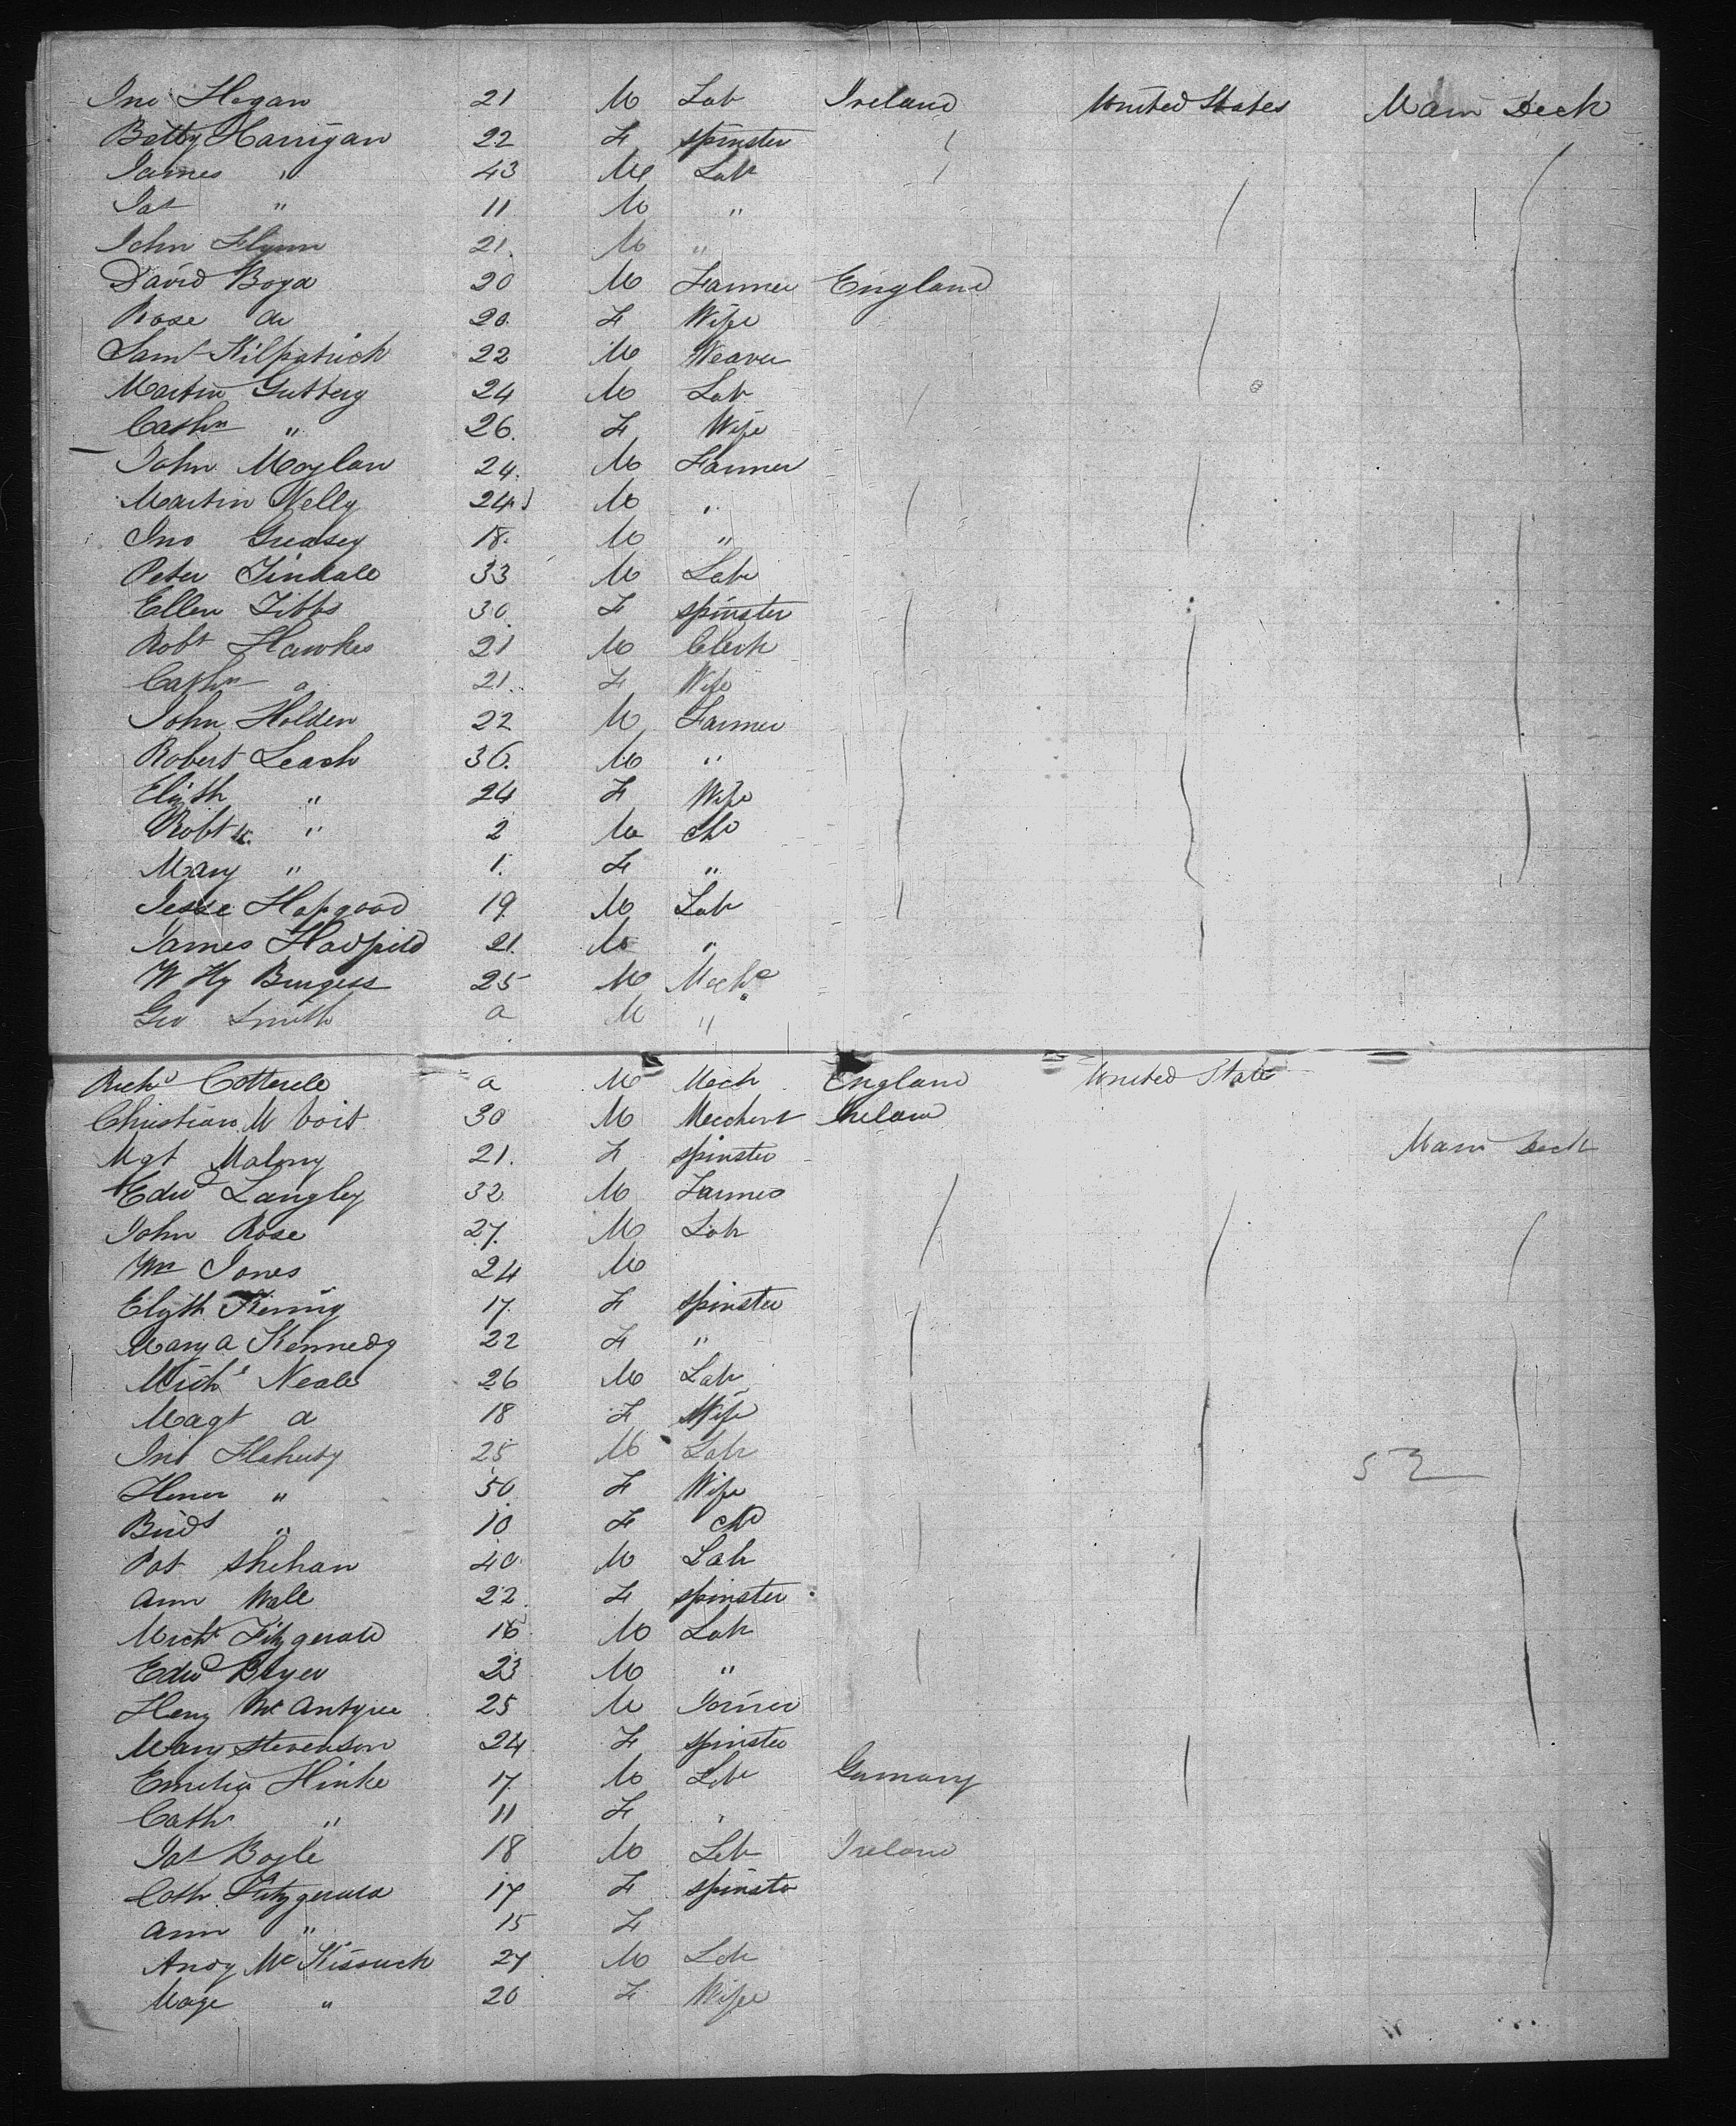 Jno Hogan 21 M Lab Ireland United States Main Deck
Betty Harrigan 22 F spinster
James " 43 M Lab
Pat " 11 M "
John Flynn 21 M "
David Boyd 20 M Farmer England
Rose Do 20 F Wife
Saml Kilpatrick 22 M Weaver
Martin 24 M Lab
Cathn " 26 F Wife
John Moylan 24 M Farmer
Martin Kelly 24 M "
Jno 18 M "
Peter Tindale 33 M Lab
Ellen Tibbs 30 F spinster
Robt Hawkes 21 M Clerk
Cathn 21 F Wife
John Holden 22 M Farmer
Robert Leach 36 M "
Elizth " 24 F Wife
Robt " 2 M chd
Mary " 1 F "
Jesse Hapgood 19 M Lab
James Hadfield 21 M "
W Hy Burgess 25 M Mechc
Geo Smith a M "
Richd Cotterele a M Mech England United State
Christian M Voit 30 M Mechant Ireland
Mgt Malony 21 F spinster Main Deck
Edwd Langley 32 M Farmer
John Rose 27 M Lab
Wm Jones 24 M
Elizth 17 F spinster
Mary a Kennedy 22 F "
Michl Neale 26 M Lab
Magt a 18 F Wife
Jno Flaherty 25 M Lab 52
Honor " 50 F Wife
Bridt " 10 F chd
Pat Shehan 40 M Lab
Ann Wall 22 F spinster
Michl Fitzgerald 16 M Lab
Edwd 23 M "
Heny Mc Antyree 25 M Joiner
Mary Stevenson 24 F spinster
Emelia Hinke 17 M Lab Germany
Cath " 11 F "
Pat Boyle 18 M Lab Ireland
Cath Fitzgerald 17 F spinster
Ann " 15 F
Andy Mc Kissuck 27 M Lab
Mage " 20 F Wife